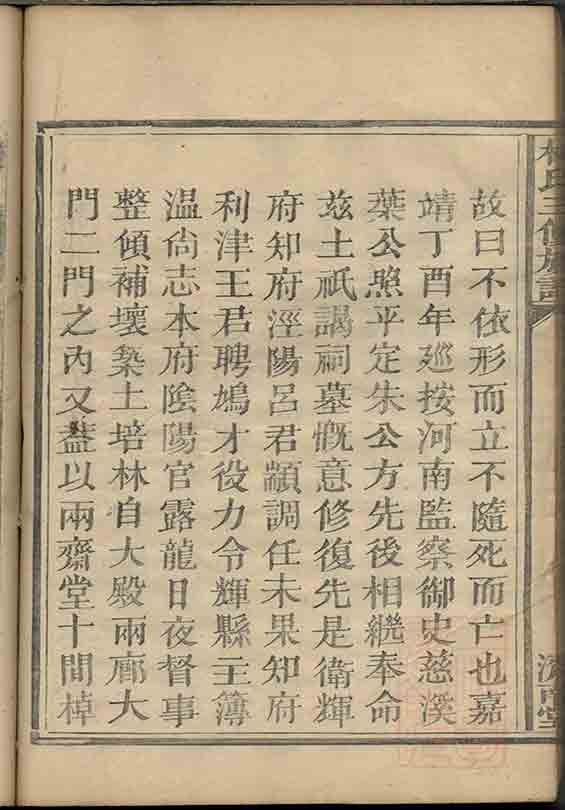 故曰不依形而立不隨死而亡也嘉
靖丁酉年廵按河南監察御史慈溪
葉公照平定朱公方先後相繼奉命
玆土祇謁祠墓慨意修復先是衛輝
府知府涇陽呂君顓調任未果知府
利津王君聘鳩才役力令輝縣主簿
温尙志本府隂陽官露龍日夜督事
整傾補壞築土培林自大殿兩廊大
門二門之內又葢以兩齋堂十間棹